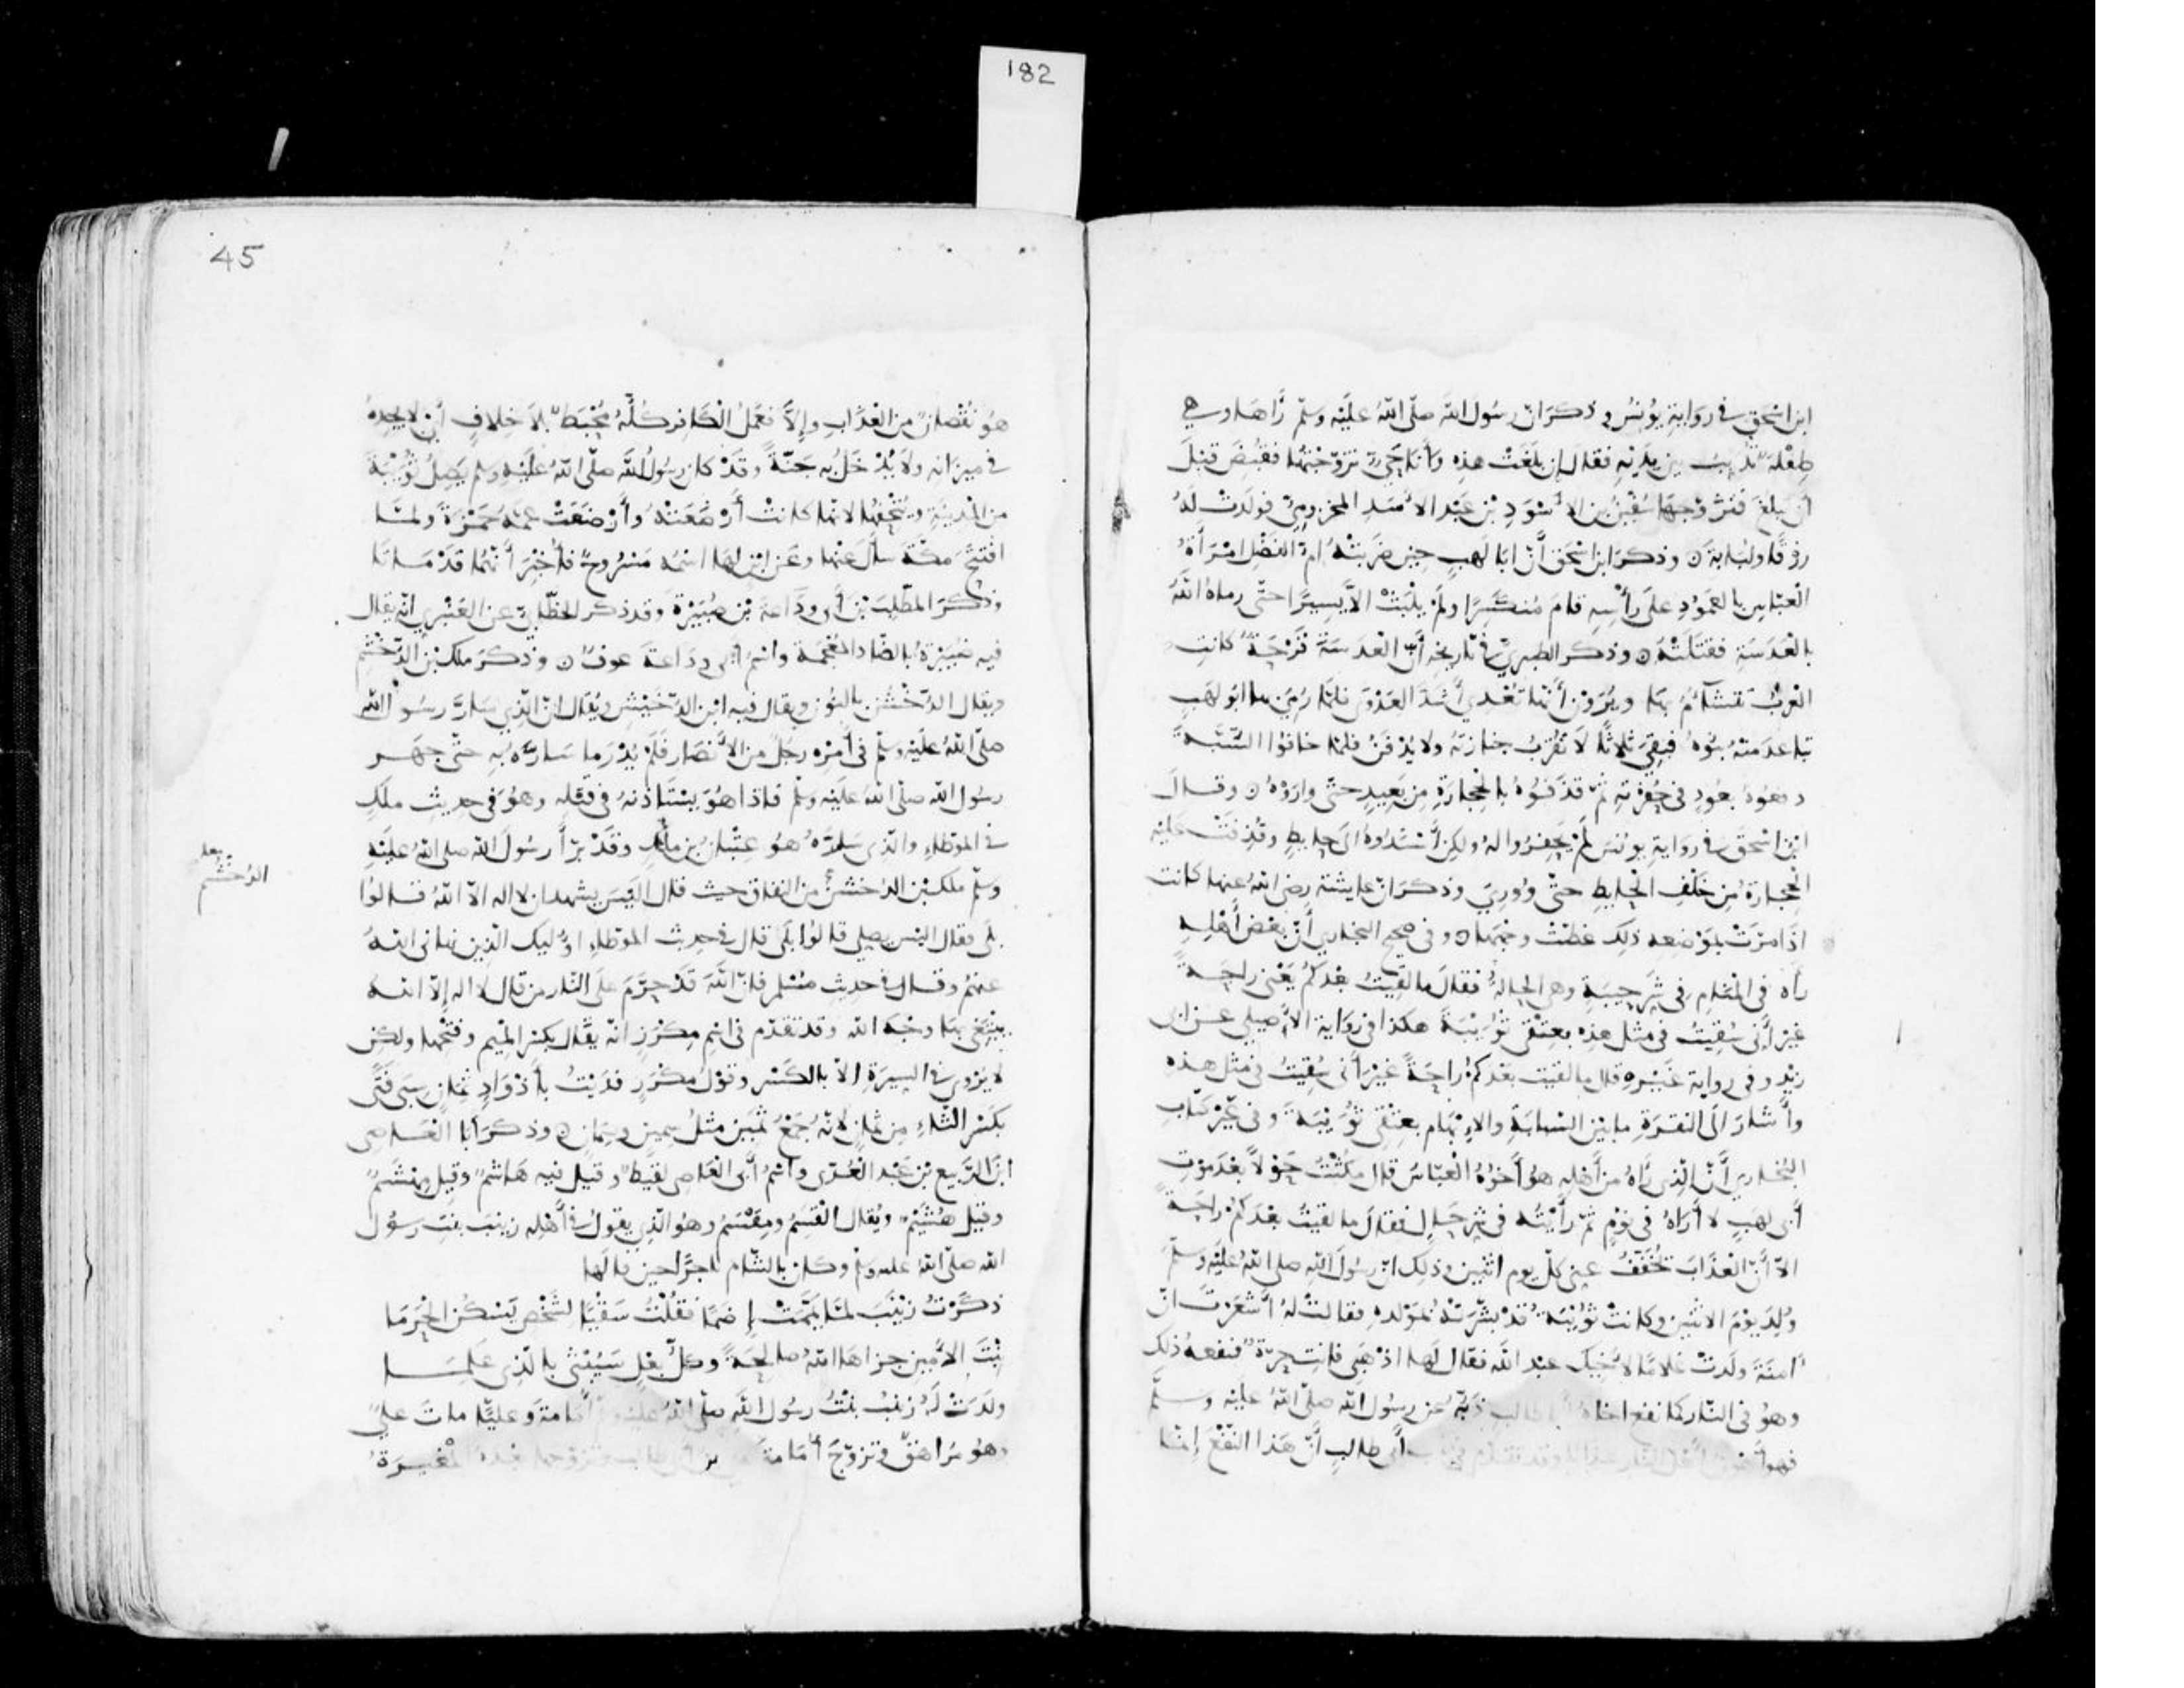 182
ابن اسحق في رواية يونس وذكر ان رسول الله صلى الله عليه وسلم رآها وهي
طفلة تدب بين يديه فقال إن بلغت هذه وأنا حي تزوجتها فقبض قبل
أن تبلغ فتزوجها سفين بن الأسود بن عبد الأسد المخزومي فولدت له
رزقا ولبابة ن وذكر ابن اسحق أن ابا لهب حين ضربته ام الفضل امرأة
العباس بالعمود على رأسه قام منكسرا ولم يلبث الا يسيرا حتى رماه الله
بالعدسة فقتلته ن وذكر الطبري في تاريخه أن العدسة قرحة كانت
العرب تتشاءم بها ويرون أنها تعدي أشد العدوى فلما رمي بها ابو لهب
تباعد منه بنوه فبقي ثلاثا لا تقرب جنازته ولا يدفن فلما خافوا السبة
دفعوه بعود في حفرته ثم قذفوه بالحجارة من بعيد حتى واروه ن وقال
ابن اسحق في رواية يونس لم يحفروا له ولكن أسندوه الى حايط وقذفت عليه
الحجارة من خلف الحايط حتى ووري وذكر ان عايشة رضي الله عنها كانت
اذا مرت بموضعه ذلك غطت وجهها ن وفي صحيح البخاري أن بعض أهله
رآه في المنام في شر حيبة وهي الحالة فقال ما لقيت بعدكم يعني راحة
غير أني سقيت في مثل هذه بعتقي ثويبة هكذا في رواية الأصيلي عن ابي
زيد وفي رواية غيره قال ما لقيت بعدكم راحة غير أني سقيت في مثل هذه
وأشار الى النقرة ما بين السبابة والابهام بعتقي ثويبة وفي غير كتاب
البخاري أن الذي رآه من أهله هو أخوه العباس قال مكثت حولا بعد موت
أبي لهب لا أراه في نوم ثم رأيته في شر حال فقال ما لقيت بعدكم راحة
الا أن العذاب يخفف عني كل يوم اثنين وذلك ان رسول الله صلى الله عليه وسلم
ولد يوم الاثنين وكانت ثويبة قد بشرته بمولده فقالت له أشعرت ان
آمنة ولدت غلاما لأخيك عبد الله فقال لها اذهبي فانت حرة فنفعه ذلك
وهو في النار كما نفع اخاه أبا طالب ذبه عن رسول الله صلى الله عليه وسلم
فهو أهون أهل النار عذابا وقد تقدم في باب أبي طالب أن هذا النفع إنما
45
هو نقصان من العذاب وإلا فعمل الكافر كله محبط بلا خلاف أي لا يجده
في ميزانه ولا يدخل به جنة وقد كان رسول الله صلى الله عليه وسلم يصل ثويبة
من المدينة ويتحفها لانها كانت أرضعته وأرضعت عمه حمزة ولما
افتتح مكة سأل عنها وعن ابن لها اسمه مسروح فأخبر أنهما قد ماتا
وذكر المطلب بن أبي وداعة بن صبيرة وقد ذكر الخطابي عن العنبري انه يقال
فيه ضبيرة بالضاد المعجمة واسم ابي وداعة عوف ن وذكر ملك بن الدخشم
ويقال الدخشن بالنون ويقال فيه ابن الدخيش ويقال ان الذي سار رسول الله
صلى الله عليه وسلم في أمره رجل من الأنصار فلم يدر ما ساره به حتى جهر
رسول الله صلى الله عليه وسلم فاذا هو يستأذنه في قتله وهو في حديث ملك
في الموطاء والذي ساره هو عتبان بن مالك وقد برأ رسول الله صلى الله عليه
وسلم ملك بن الدخشن من النفاق حيث قال اليس يشهد ان لا اله الا الله قالوا
الدخشم
بلى فقال اليس يصلي قالوا بلى قال في حديث الموطاء اوليك الذين نهاني الله
عنهم وقال في حديث مسلم فان الله قد حرم على النار من قال لا اله إلا الله
يبتغي بها وجه الله وقد تقدم في اسم مكرز انه يقال بكسر الميم وفتحها ولكن
لا يروى في السيرة الا بالكسر وقول مكرز فديت بأذواد ثمان سبى فتى
بكسر الثاء من ثمان لانه جمع ثمين مثل سمين وسمان ن وذكر أبا العاصي
ابن الربيع بن عبد العزى واسم أبي العاصي لقيط وقيل فيه هاشم وقيل مهشم
وقيل هشيم ويقال القسم ومقسم وهو الذي يقول في أهله زينب بنت رسول
الله صلى الله عليه وسلم وكان بالشام تاجرا حين قالها
ذكرت زينب لما يممت إضما فقلت سقيا لشخص يسكن الحرما
بنت الأمين جزاها الله صالحة وكل بعل سيثني بالذي علما
ولدت له زينب بنت رسول الله صلى الله عليه وسلم أمامة وعليا مات علي
وهو مراهق وتزوج أمامة علي بن أبي طالب وتزوجها بعده المغيرة